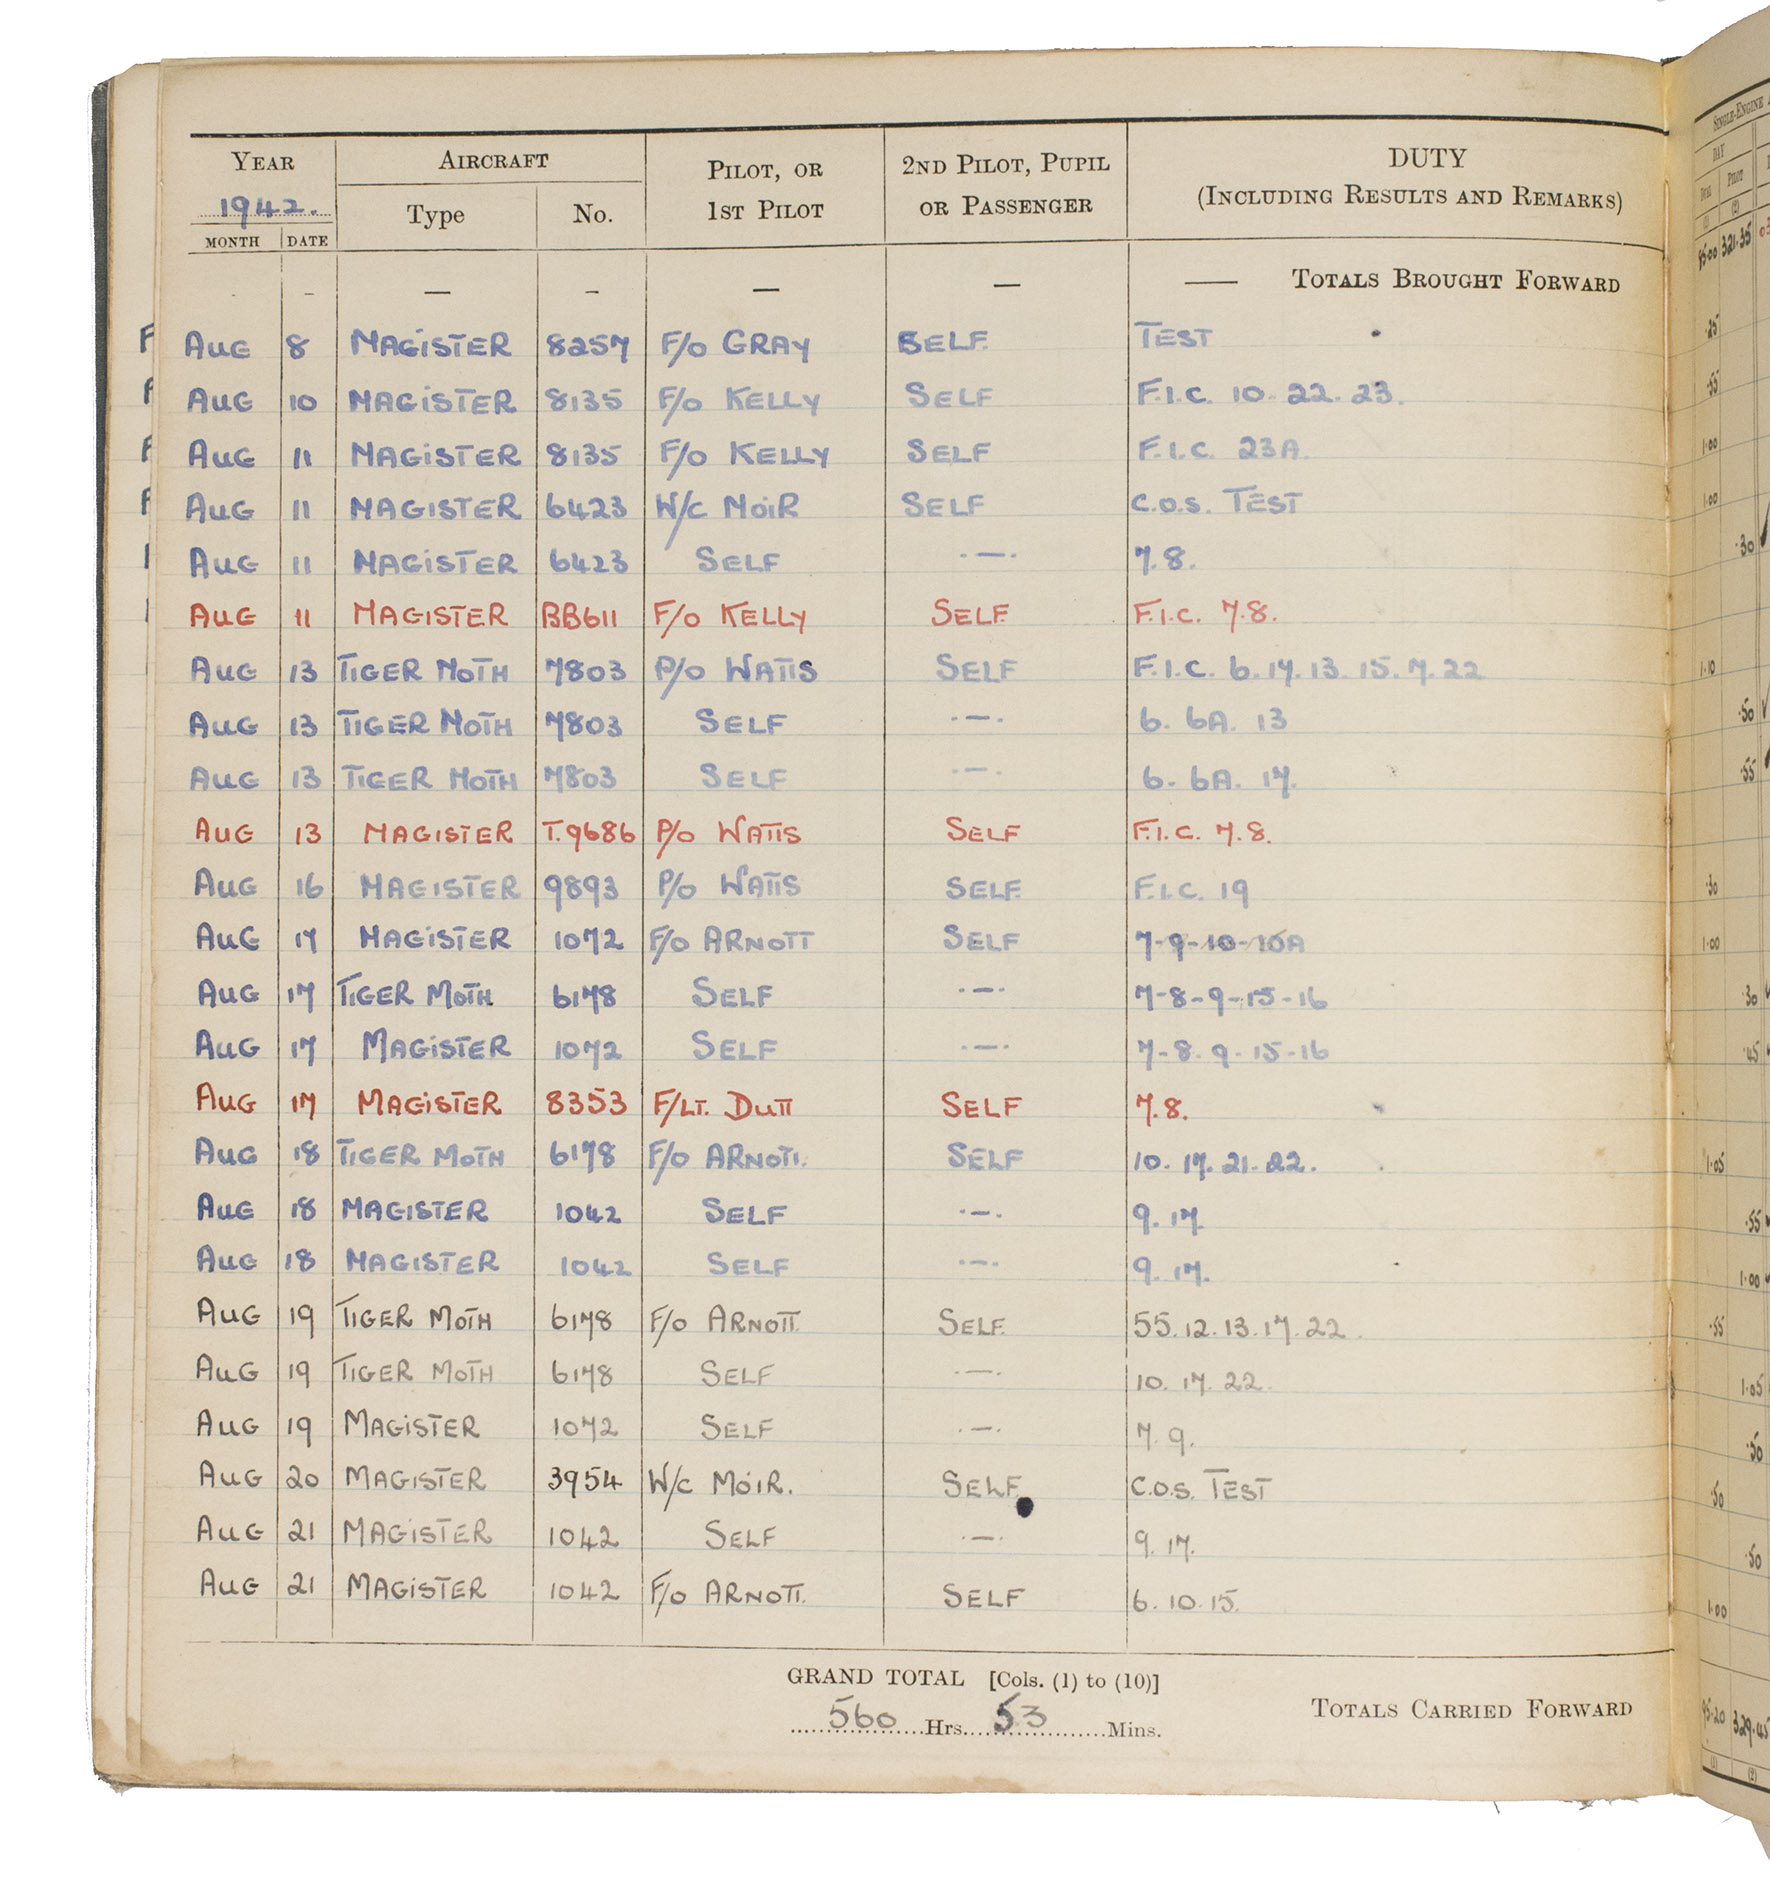 YEAR AIRCRAFT PILOT, OR 2ND PILOT, PUPIL DUTY
1942. Type No. 1ST PILOT OR PASSENGER (INCLUDING RESULTS AND REMARKS)
MONTH DATE
- - — - — — — TOTALS BROUGHT FORWARD
AUG 8 MAGISTER 8257 F/O GRAY SELF. TEST
AUG 10 MAGISTER 8135 F/O KELLY SELF F.I.C. 10. 22. 23.
AUG 11 MAGISTER 8135 F/O KELLY SELF F.I.C. 23A.
AUG 11 MAGISTER 6423 W/C MOIR SELF C.O.S. TEST
AUG 11 MAGISTER 6423 SELF .—. 7.8.
AUG 11 MAGISTER BB611 F/O KELLY SELF. F.I.C. 7.8.
AUG 13 TIGER MOTH 7803 P/O WATTS SELF F.I.C. 6. 17. 13. 15. 7. 22
AUG 13 TIGER MOTH 7803 SELF .—. 6. 6A. 13
AUG 13 TIGER MOTH 7803 SELF .—. 6. 6A. 17.
AUG 13 MAGISTER T.9686 P/O WATTS SELF F.I.C. 7.8.
AUG 16 MAGISTER 9893 P/O WATTS SELF. F.I.C. 19
AUG 17 MAGISTER 1072 F/O ARNOTT SELF 7-9-10-10A
AUG 17 TIGER MOTH 6178 SELF .—. 7-8-9-15-16
AUG 17 MAGISTER 1072 SELF .—. 7-8.9-15-16
AUG 17 MAGISTER 8353 F/LT. DUTT SELF 7.8.
AUG 18 TIGER MOTH 6178 F/O ARNOTT. SELF 10. 17. 21. 22.
AUG 18 MAGISTER 1042 SELF .—. 9. 17.
AUG 18 MAGISTER 1042 SELF .—. 9. 17.
AUG 19 TIGER MOTH 6178 F/O ARNOTT. SELF. 55. 12. 13. 17. 22.
AUG 19 TIGER MOTH 6178 SELF .—. 10. 17. 22.
AUG 19 MAGISTER 1072 SELF .—. 7. 9.
AUG 20 MAGISTER 3954 W/C MOIR. SELF. C.O.S. TEST
AUG 21 MAGISTER 1042 SELF .—. 9. 17.
AUG 21 MAGISTER 1042 F/O ARNOTT. SELF 6. 10. 15.
GRAND TOTAL [Cols. (1) to (10)]
560 Hrs. 53 Mins. TOTALS CARRIED FORWARD
SINGLE-ENGINE
DAY
DUAL PILOT
(1) (2)
85.00 321.35
.25
.55
1.00
1.00
.30
1.10
.50
.55
.30
1.00
.30
.45
1.05
.55
1.00
.55
1.05
.50
.50
.50
1.00
95.20 329.45
(1) (2)